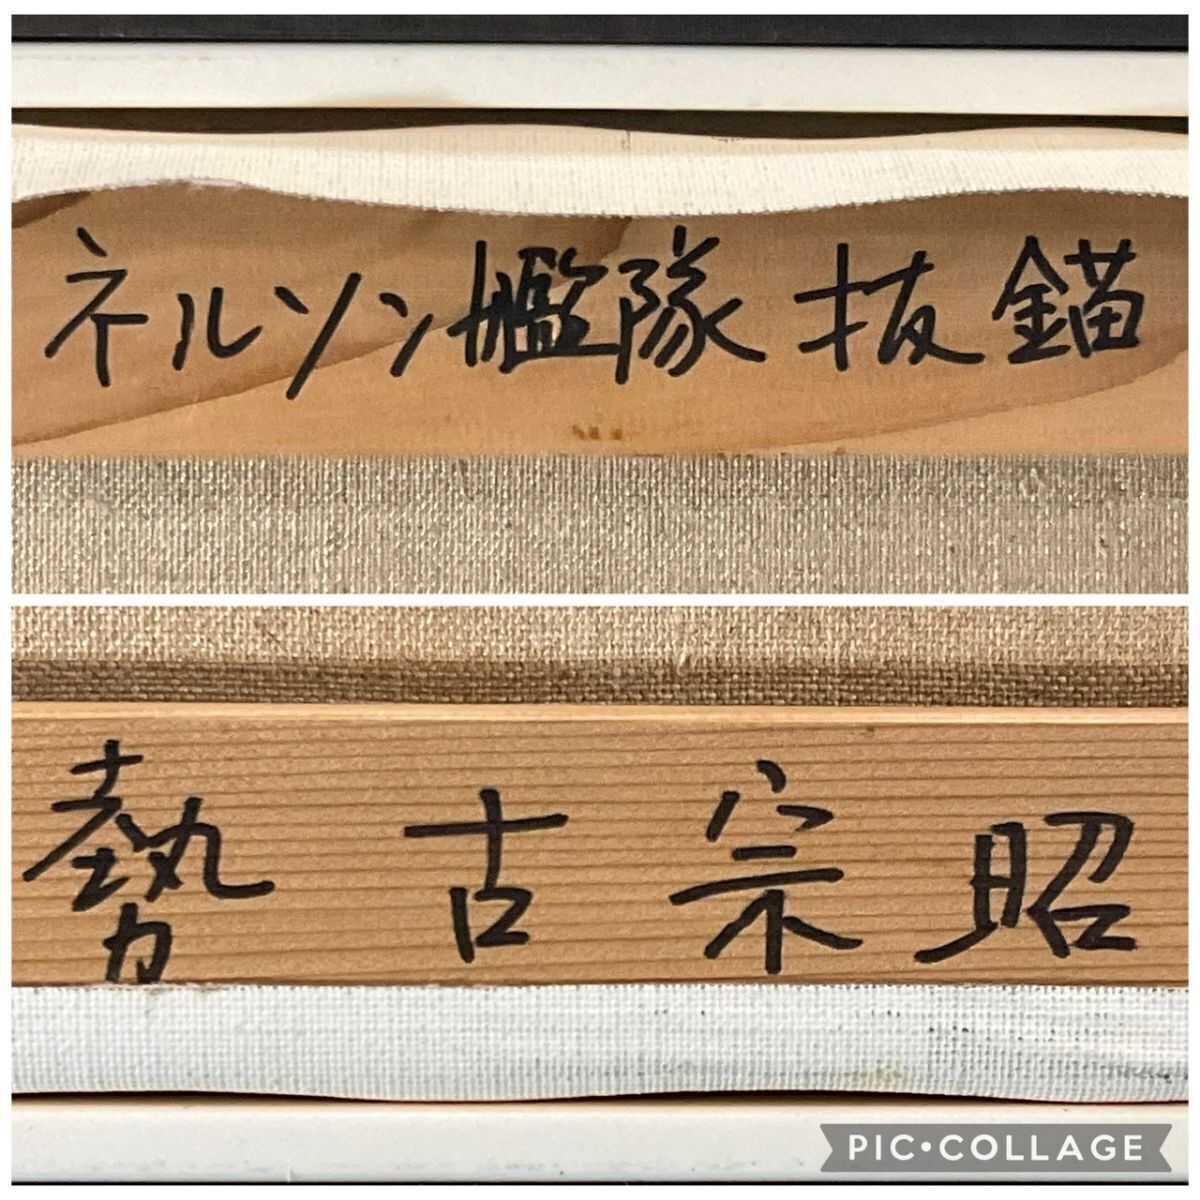 ネルソン艦隊 抜錨
勢古宗昭
PIC•COLLAGE